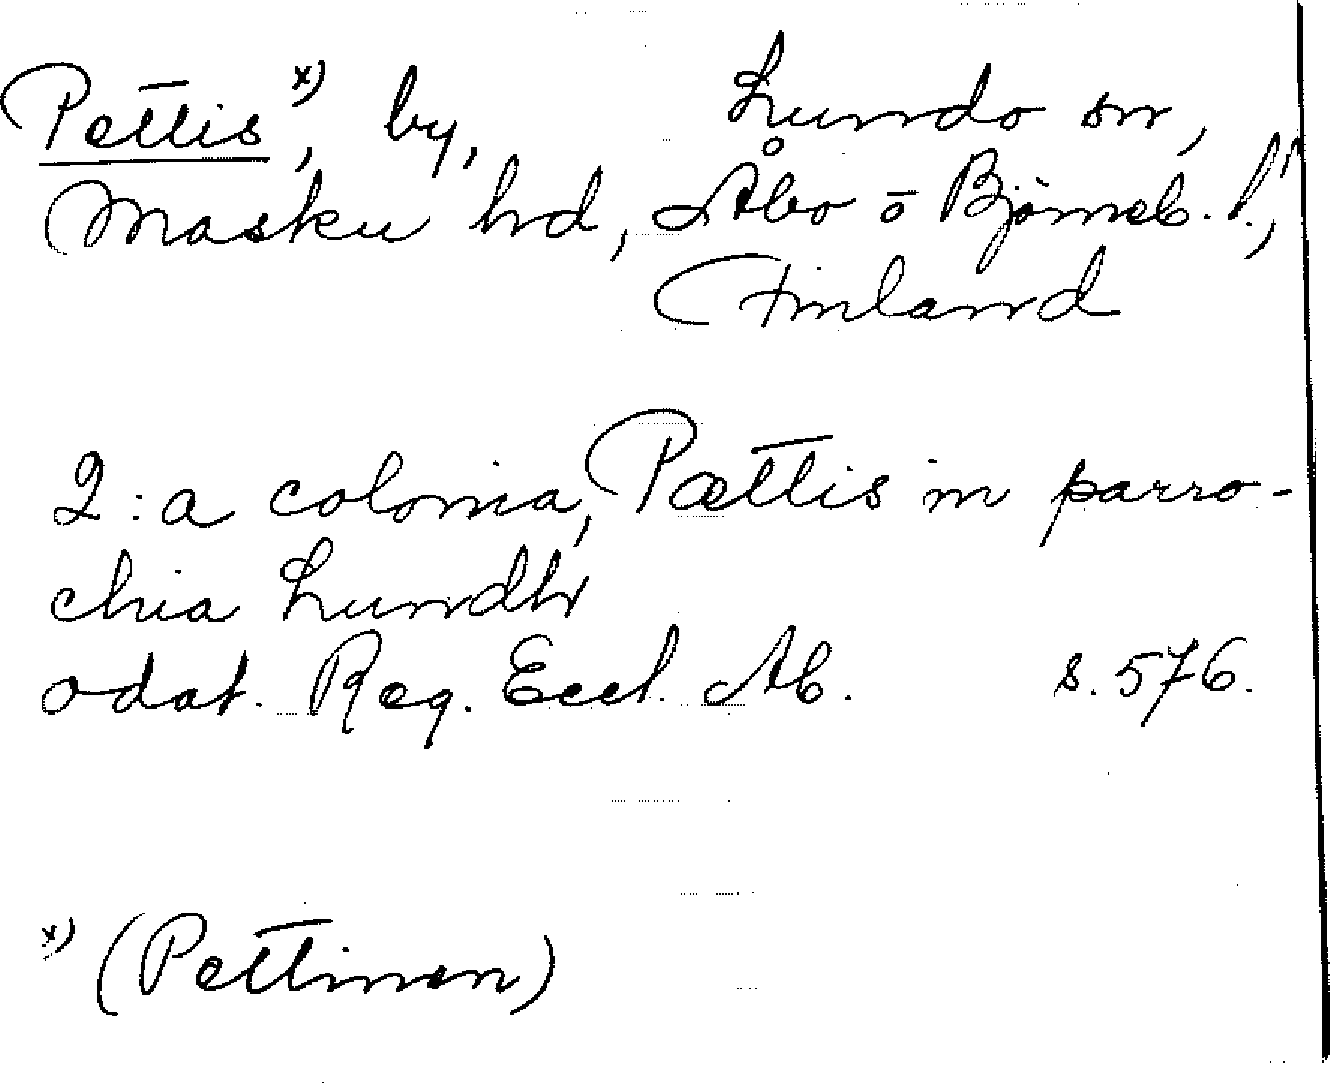 Pettis x), by, Lundo sn,
Masku hd, Åbo o Björneb. l.,
Finland
2: a colonia, Pættis in parro-
chia Lundh
odat. Reg. Eccl. Ab. s. 576.
x) (Pettinen)